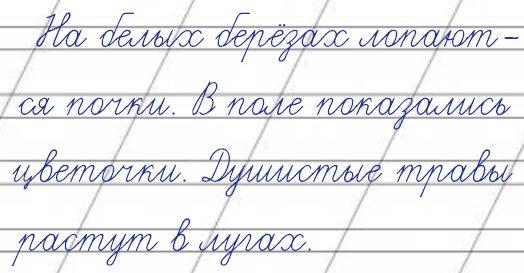 На белых берёзах лопают-
ся почки. В поле показались
цветочки. Душистые травы
растут в лугах.